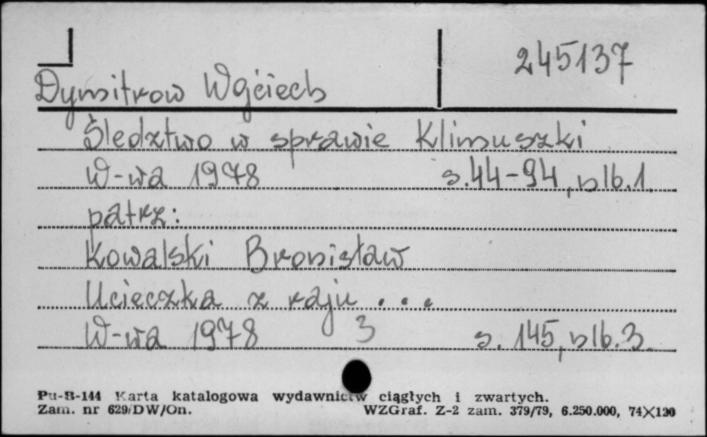 245137
Dymitrow Wojciech
Śledztwo w sprawie Klimuszki
W-wa 1978 s.44-94, nlb.1.
patrz:
Kowalski Bronisław
Ucieczka z raju ...
W-wa 1978 3 s. 145, nlb.3.
Pu-B-144 Karta katalogowa wydawnictw ciągłych i zwartych.
Zam. nr 629/DW/On. WZGraf. Z-2 zam. 379/79, 6.250.000, 74×120